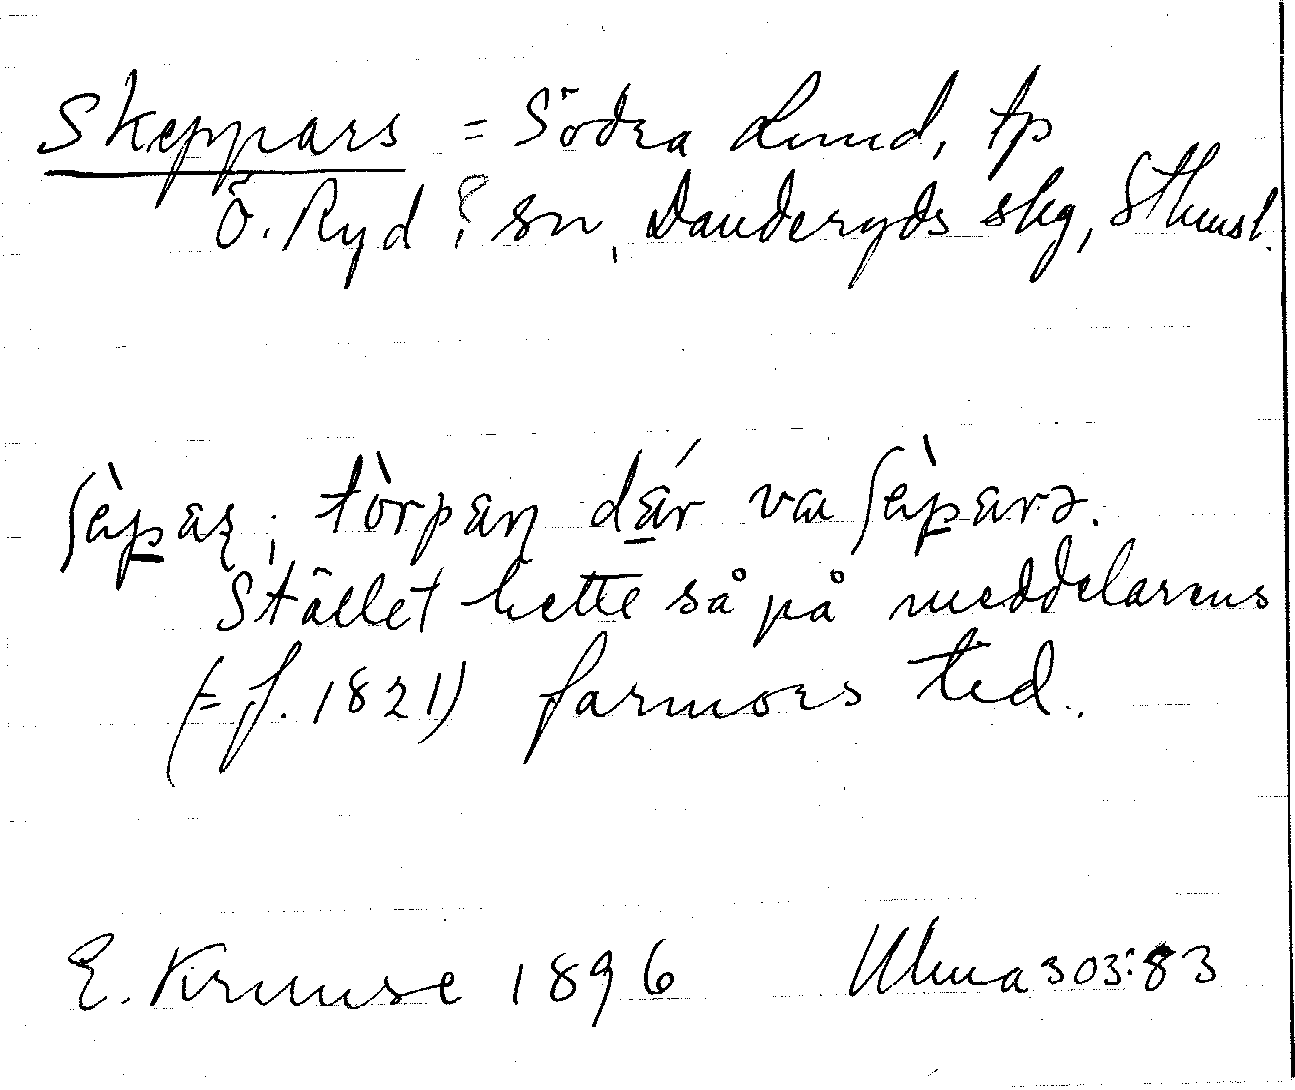 Skeppars = Södra Lund, tp
Ö. Ryd ? sn, Danderyds skg, Sthmsl.
ʃèpaʂ; tòrpaɳ dár va ʃèparɔ.
Stället hette så på meddelarens
(= f. 1821) farmors tid.
E. Kruuse 1896 Ulma 303:83